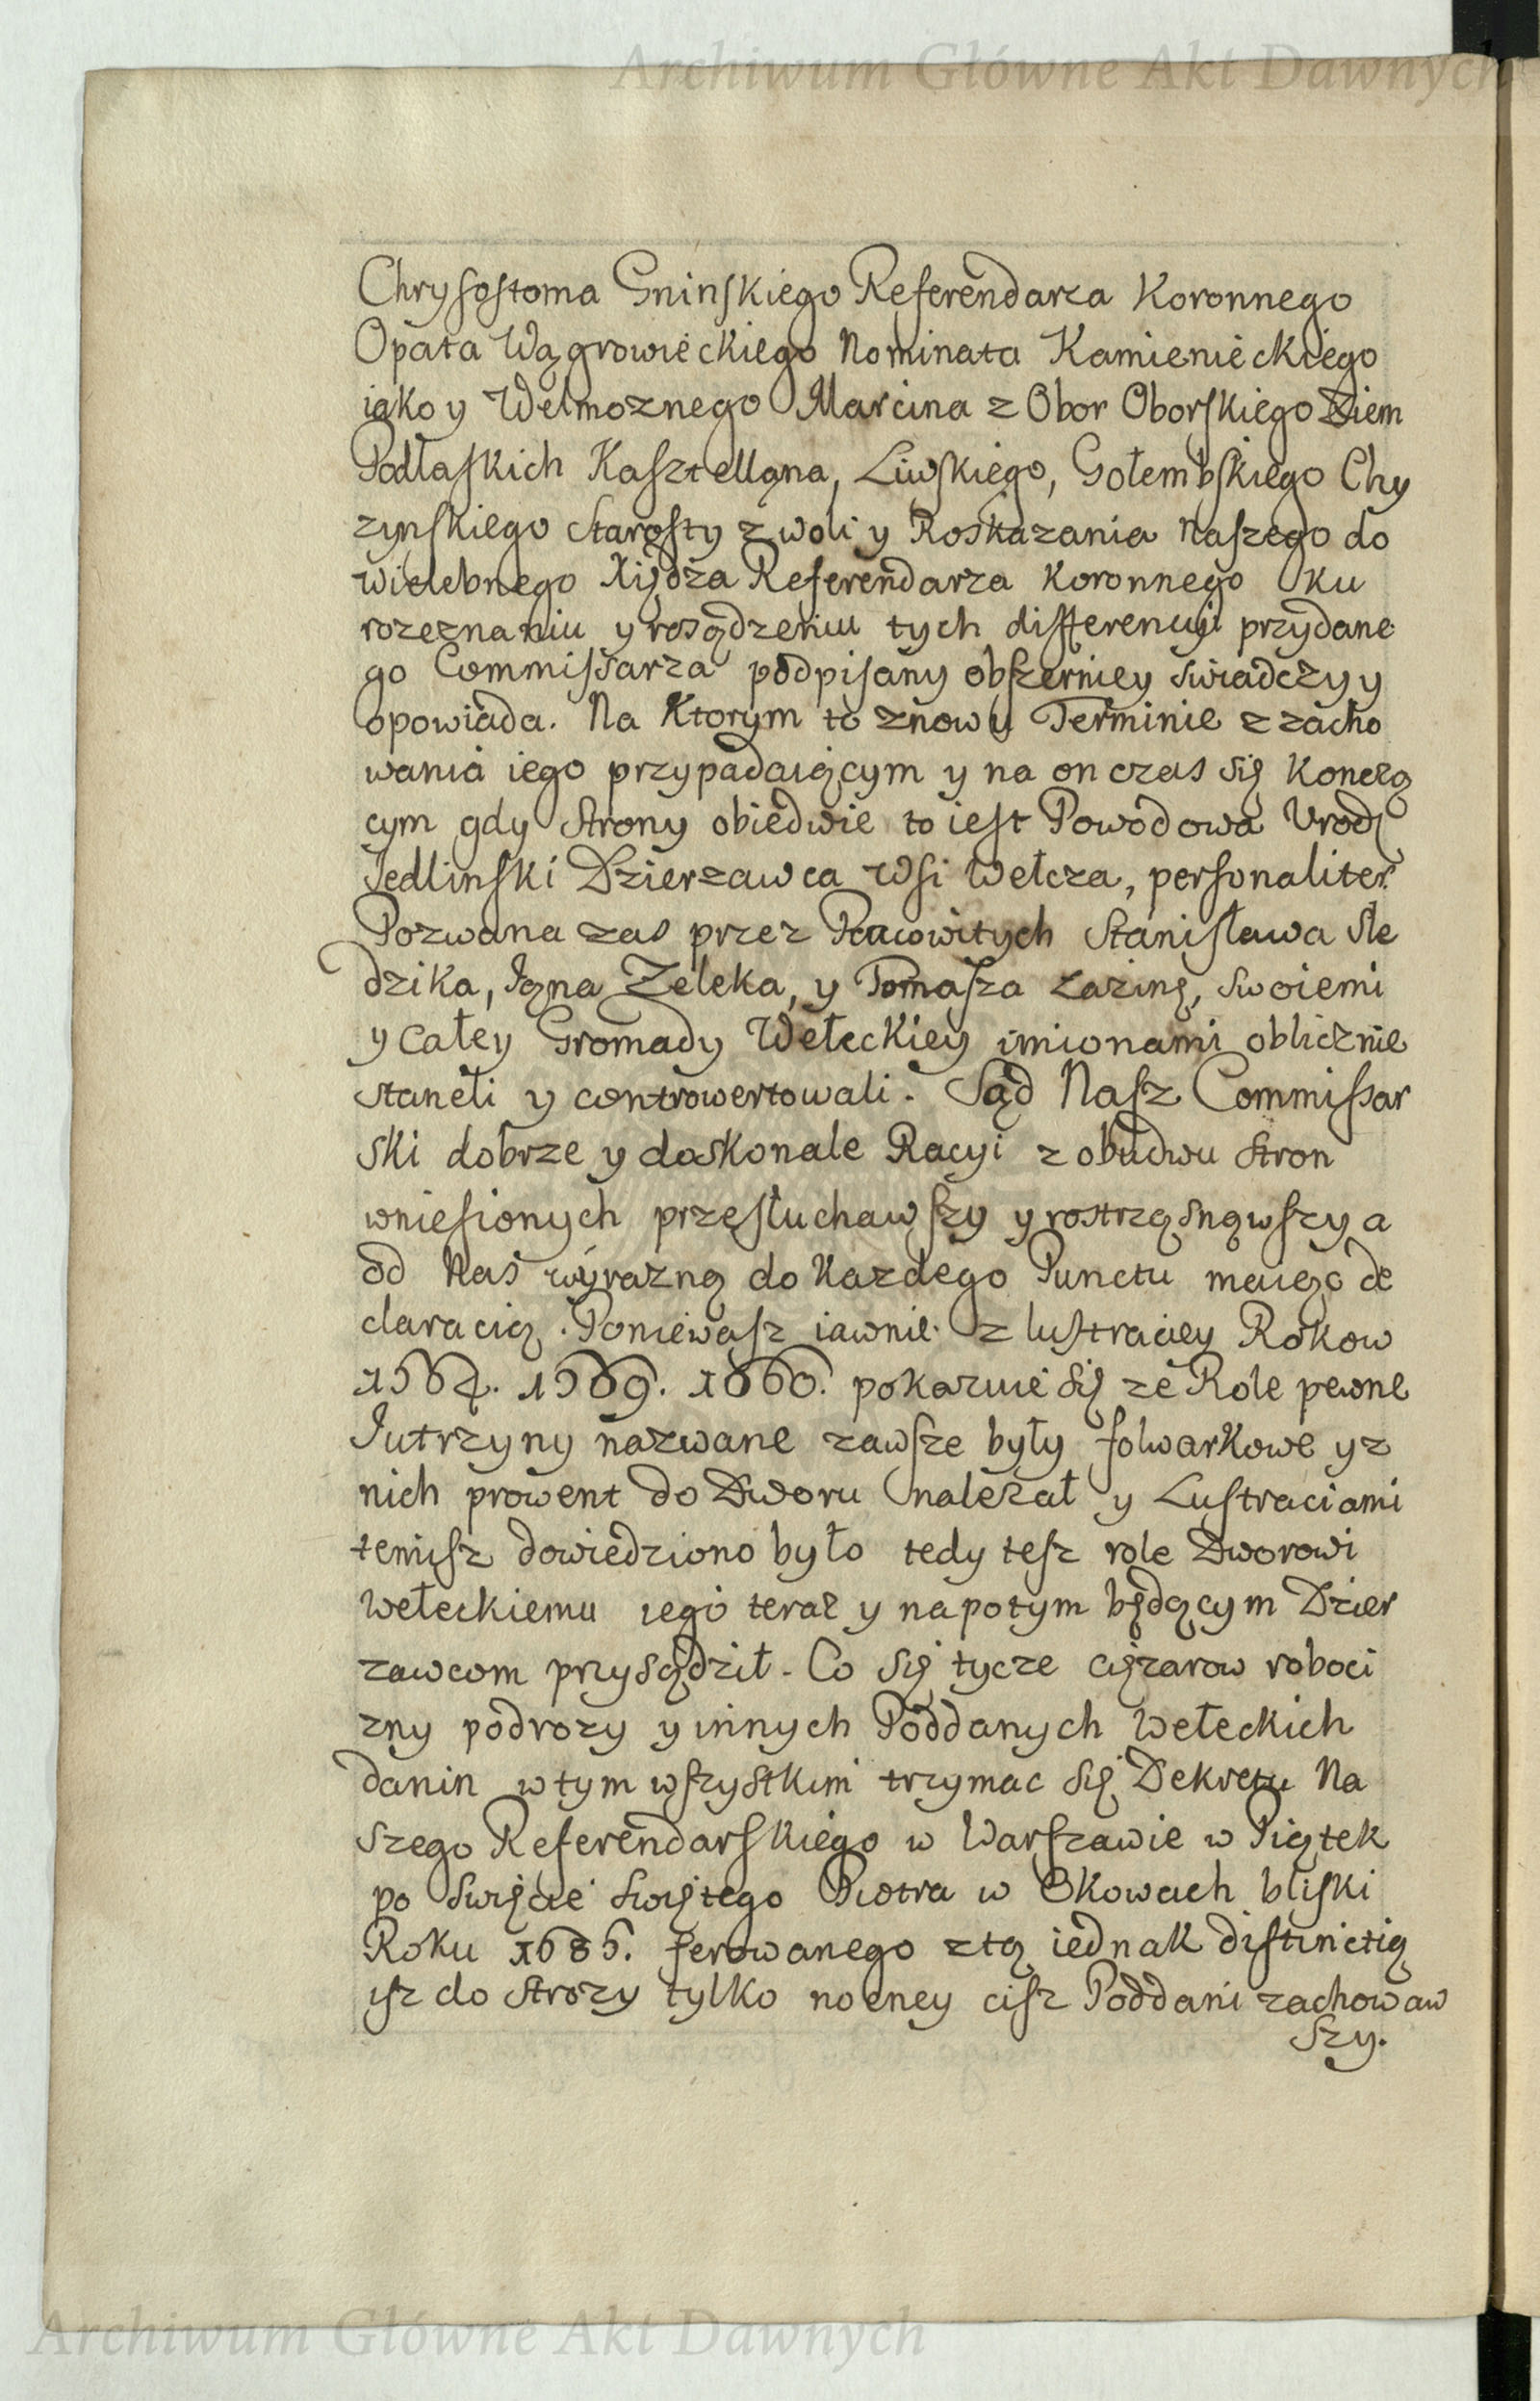 Archiwum Główne Akt Dawnych
Chrysostoma Gninskiego Referendarza Koronnego
Opata Wągrowieckiego Nominata Kamienieckiego
iako y Welmoznego Marcina z Obor Oborskiego Ziem
Podlaskich Kasztellana, Liwskiego, Gołembskiego Chy
zynskiego Starosty z woli y Roskazania Naszego do
wielebnego Xiędza Referendarza Koronnego ku
rozeznaniu y rosądzeniu tych differencyi przydane
go Commissarza podpisany obszerniey swiadczy y
opowiada. Na Ktorym to znowu Terminie z zacho
wania iego przypadaiącym y na on czas się Konczą
cym gdy Strony obiedwie to iest Powodowa Urodz
Jedlinski Dzierzawca Wsi Wełcza, personaliter.
Pozwana zas przez Pracowitych Stanisława Sle
dzika, Jana Zeleka, y Tomasza Łazinę, swoiemi
y całey Gromady Wełeckiey imionami oblicznie
staneli y controwertowali. Sąd Nasz Commissar
ski dobrze y doskonale Racyi z obudwu Stron
wniesionych przesłuchawszy y rostrząsnąwszy a
od Nas wyrazną do Kazdego Punctu maiąc de
claracią. Poniewasz iawnie z lustraciey Rokow
1564. 1569. 1660. pokazuie się ze Role pewne
Jutrzyny nazwane zawsze były folwarkowe y z
nich prowent do Dworu nalezał y Lustraciami
temisz dowiedziono było tedy tesz role Dworowi
Wełeckiemu iego teraz y napotym będącym Dzier
zawcom przysądził. Co się tycze cięzarow roboci
zny podrozy y innych Poddanych Wełeckich
danin w tym wszystkim trzymac się Dekretu Na
szego Referendarskiego w Warszawie w Piątek
po Swięcie Swiętego Piotra w Okowach bliski
Roku 1686. ferowanego z tą iednak distinctią
isz do Strozy tylko nocney cisz Poddani zachowaw
szy.
Archiwum Główne Akt Dawnych